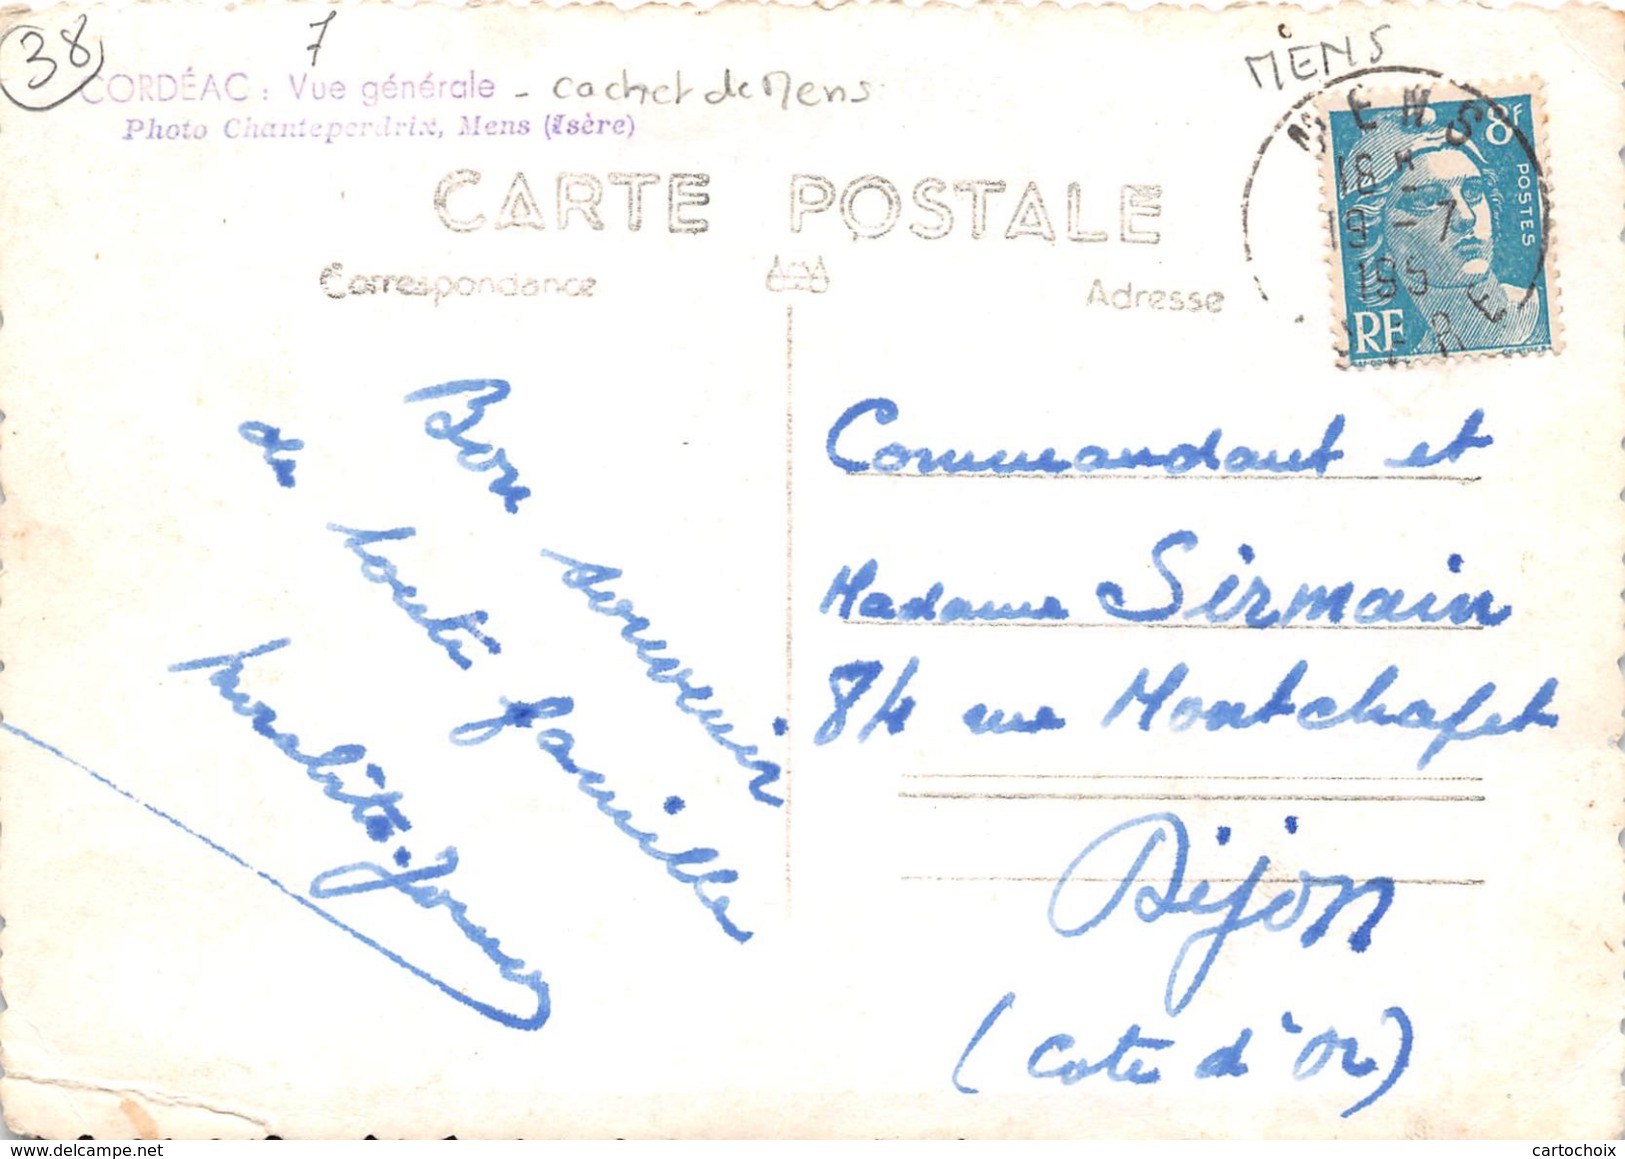 38
7
CORDÉAC : Vue générale - cachet de Mens
Photo Chanteperdrix, Mens (Isère)
MENS
MENS
18 H
19 - 7
195
ISERE
8F
POSTES
RF
CARTE POSTALE
Correspondance
Adresse
Bon souvenir
de toute famille
Commandant et
Madame Sirmain
84 rue Montchapet
Dijon
(Cote d'Or)
cartochoix